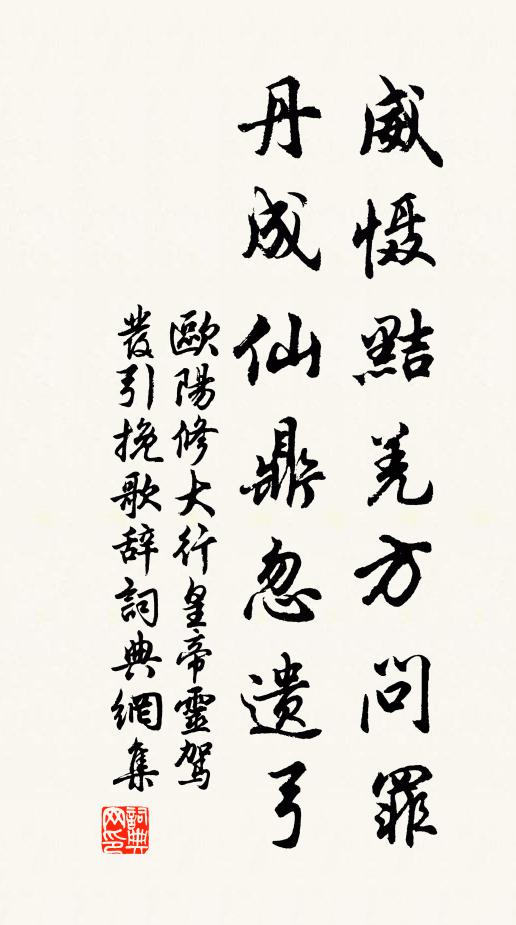 威慑黠羌方问罪
丹成仙鼎忽遗弓
歐陽修大行皇帝靈駕
發引挽歌辞詞典網集
詞典网印